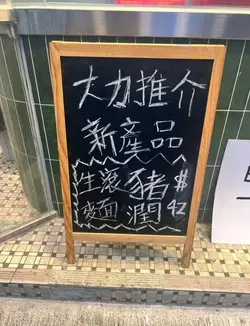 大力推介
新產品
生滾豬$
麵潤42